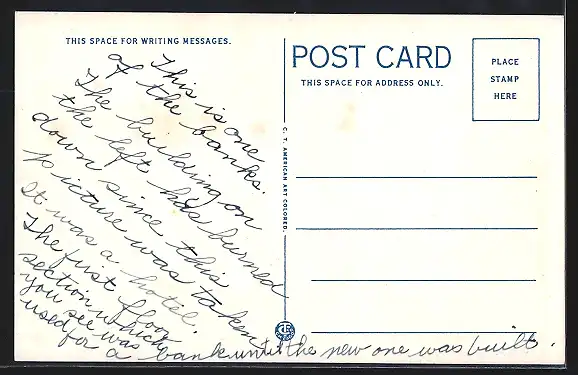 THIS SPACE FOR WRITING MESSAGES.
This is one
of the banks.
The building on
the left has burned
down since this
picture was taken
It was a hotel.
The first floor
section which
you see was
used for
a bank until the new one was built.
POST CARD
THIS SPACE FOR ADDRESS ONLY.
PLACE
STAMP
HERE
C. T. AMERICAN ART COLORED.